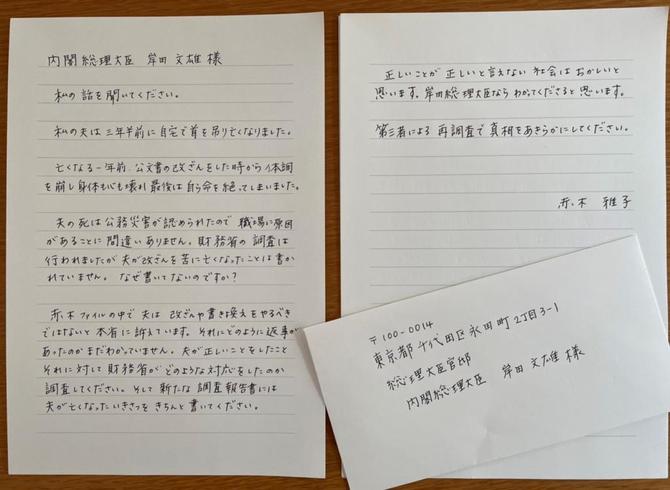 内閣総理大臣 岸田 文雄 様
私の話を聞いてください。
私の夫は三年半前に自宅で首を吊り亡くなりました。
亡くなる一年前、公文書の改ざんをした時から体調
を崩し身体も心も壊れ最後は自ら命を絶ってしまいました。
夫の死は公務災害が認められたので 職場に原因
があることに間違いありません。財務省の調査は
行われましたが夫が改ざんを苦に亡くなったことは書か
れていません。 なぜ書いてないのですか?
赤木ファイルの中で夫は 改ざんや書き換えをやるべき
ではないと 本省に訴えています。それにどのように返事が
あったのかまだわかっていません。夫が正しいことをしたこと
それに対して 財務省が どのような対応をしたのか
調査してください。そして 新たな 調査報告書には
夫が亡くなったいきさつを きちんと 書いてください。
正しいことが 正しいと言えない 社会は おかしいと
思います。岸田総理大臣なら わかってくださると 思います。
第三者による 再調査で 真相をあきらかにしてください。
赤木 雅子
〒100-0014
東京都千代田区永田町2丁目3-1
総理大臣官邸
内閣総理大臣 岸田 文雄 様